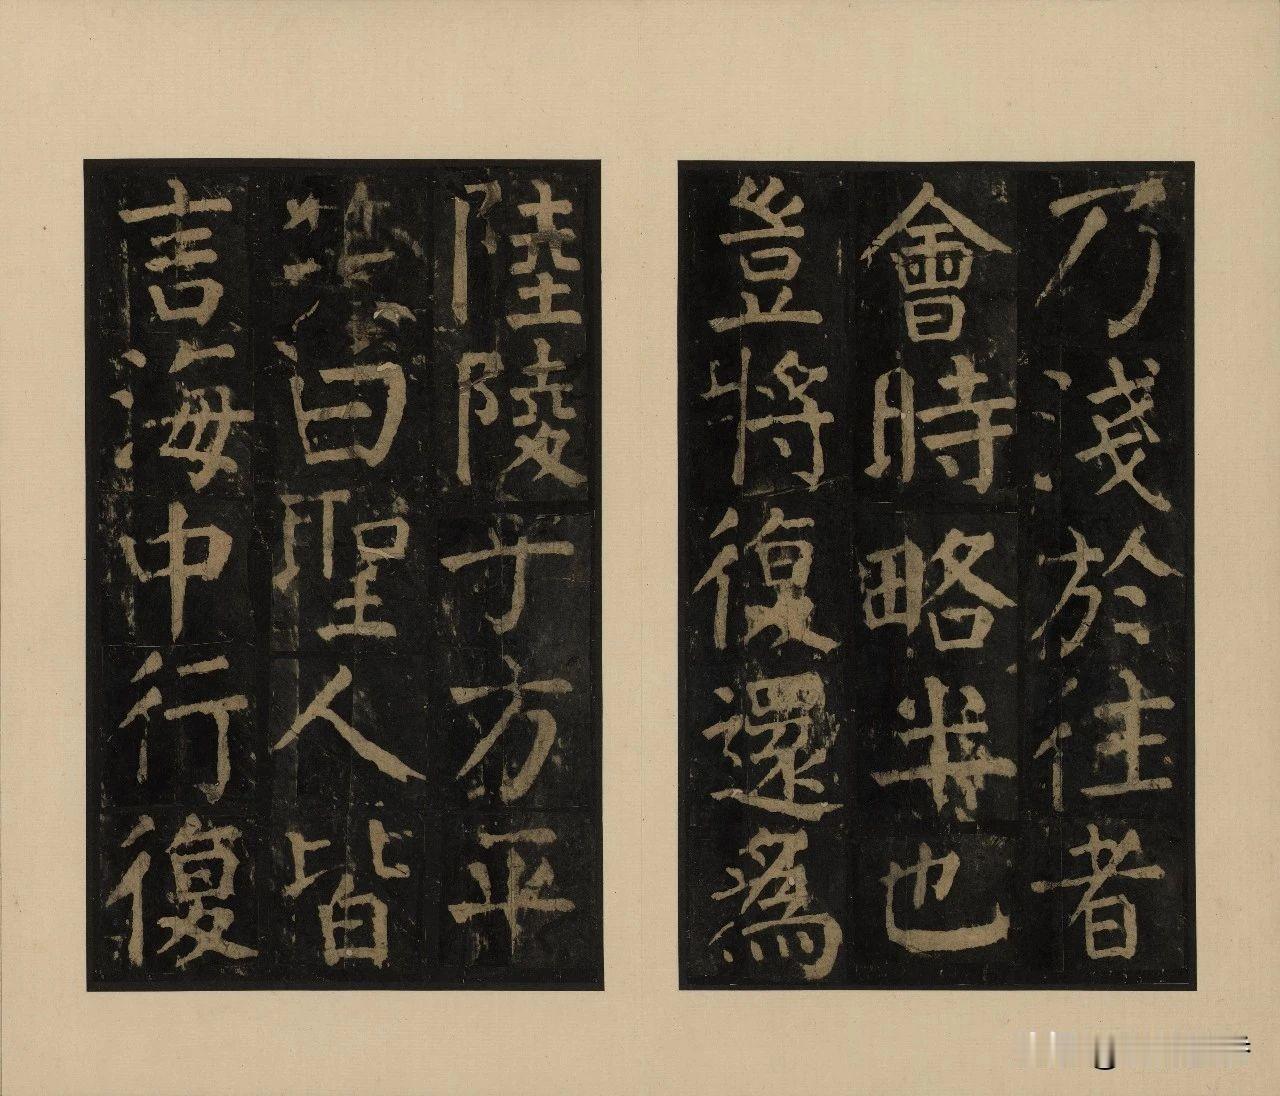 乃淺於往者
會時略半也
豈將復還為
陸陵乎方平
曰聖人皆
言海中行復